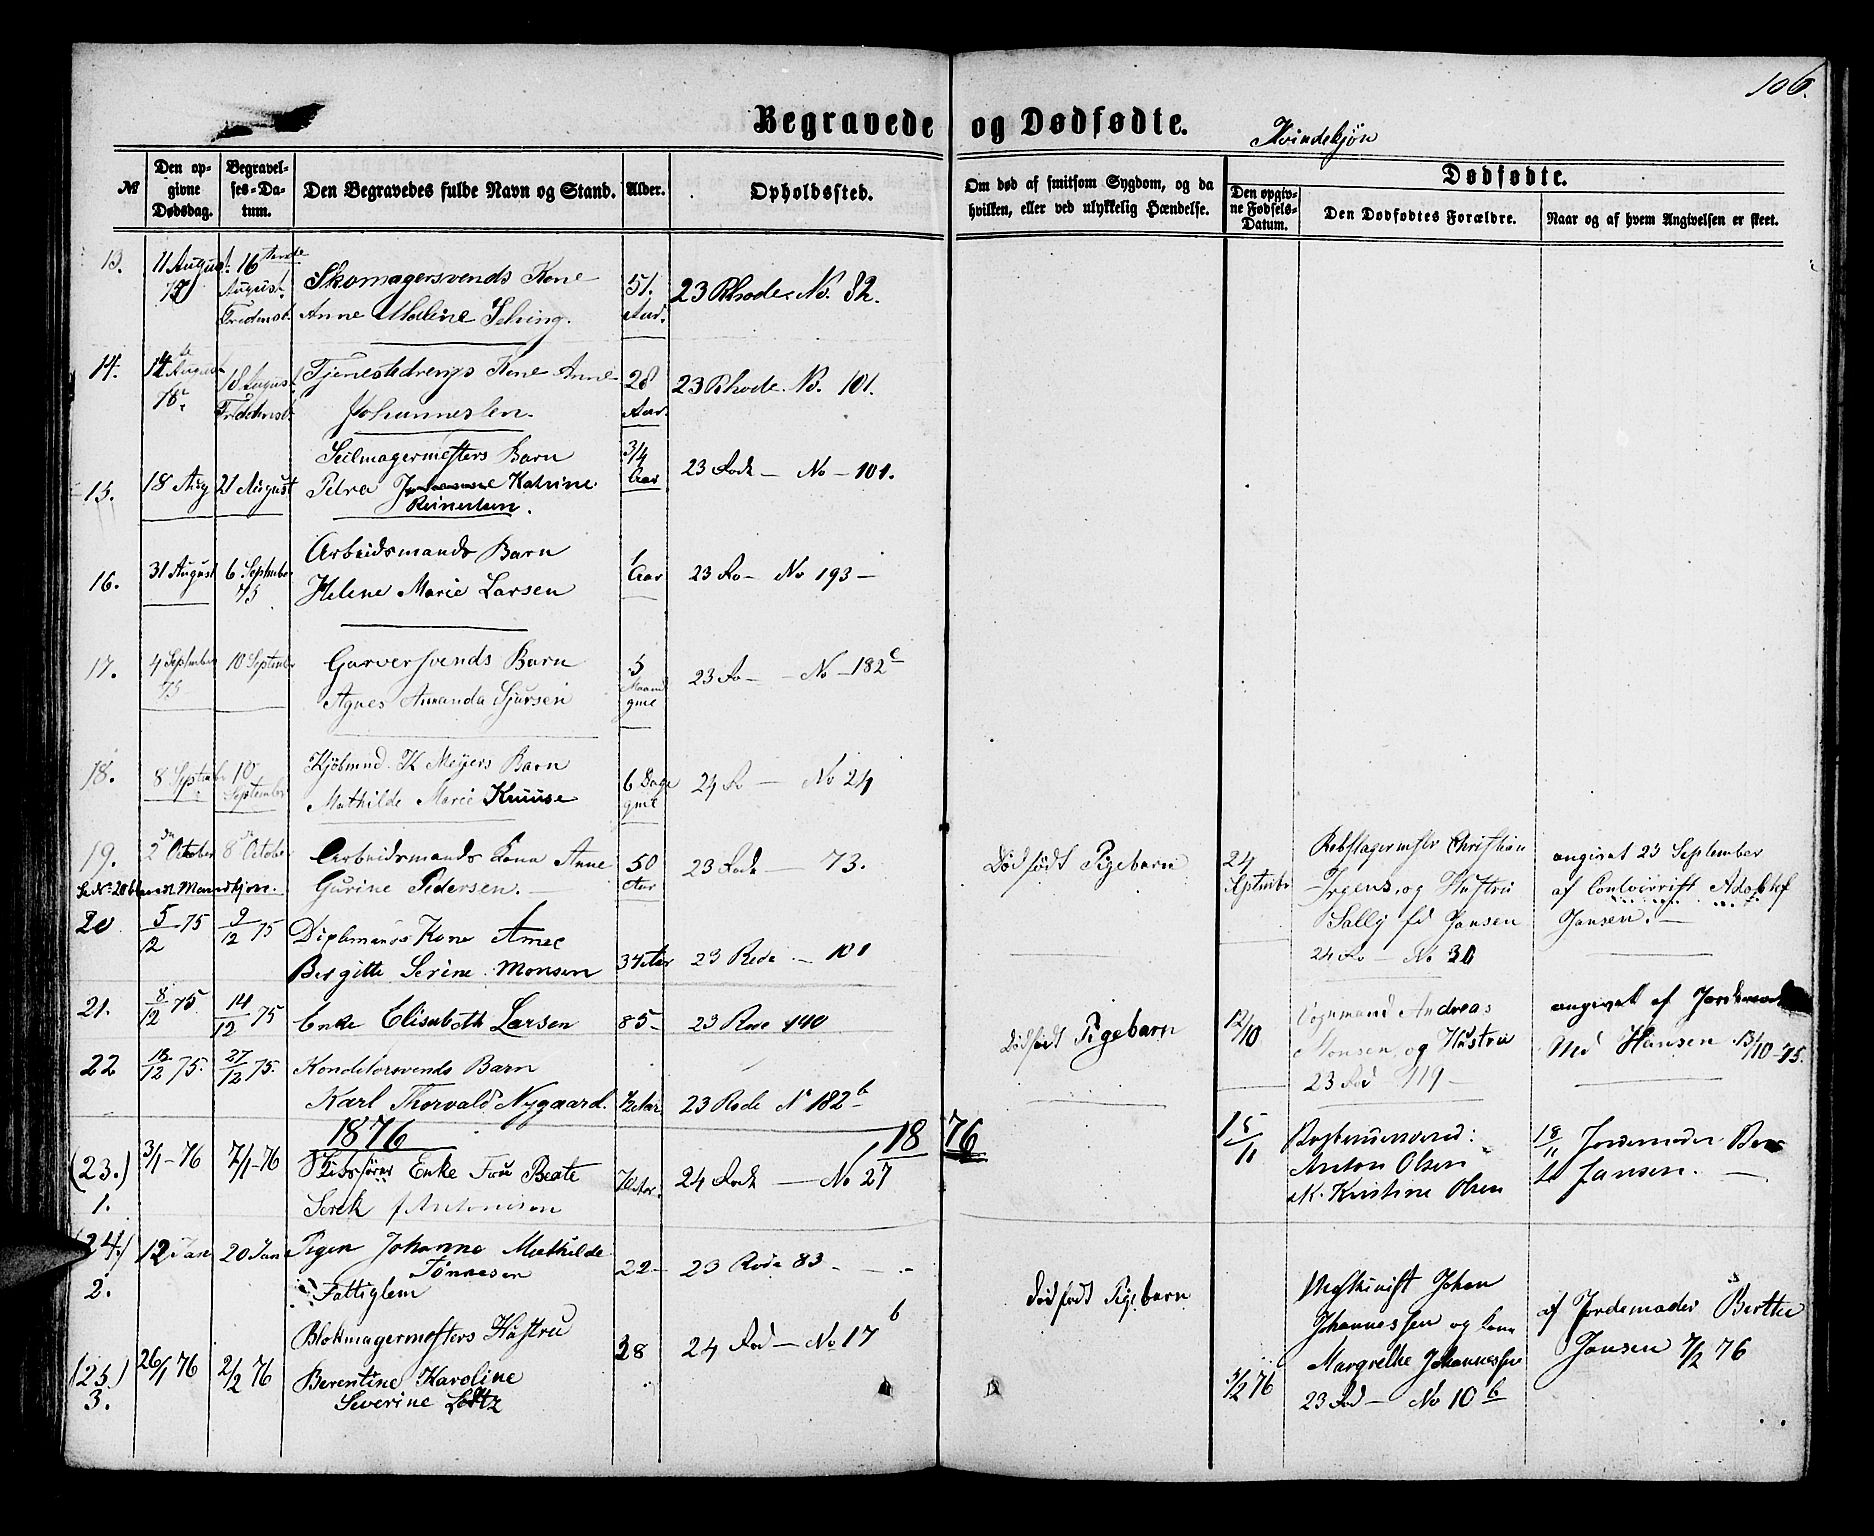 106.
Begravede og Dødfødte. Kvindekjøn
№
Den opgivne Dødsdag.
Begravelses-Datum.
Den Begravedes fulde Navn og Stand.
Alder.
Opholdssted.
Om død af smitsom Sygdom, og da hvilken, eller ved ulykkelig Hændelse.
Dødfødte.
Den opgivne Fødsels-Datum.
Den Dødfødtes Forældre.
Naar og af hvem Angivelsen er skeet.
13. 11 August 75 16 August Skomagersvends Kone 51. 23 Rhode No. 82.
Anne Malene Aar.
14. 14 August 18 August Tjenestedrengs Kone Anne 28 23 Rhode No. 101.
Johannesen. Aar.
Seilmagermesters Barn 3/4
15. 18 Aug 21 August Petra Katrine Aar 23 Rode — No — 101.
Reinertsen.
Arbeidsmands Barn 1
16. 31 August 6 September 75 Helene Marie Larsen Aar 23 Ro — No 193 —
17. 4 September 75 10 September Garversvends Barn 5 23 Ro — No — 182 c
Agnes Amanda Sjursen Maand gml
18. 8 Septemb 10 September Kjøbmnd. K Meyers Barn 6 Dage gml 24 Ro — No 24
Mathilde Marie Kruuse
19. 2 October 8 October Arbeidsmands Kone Anne 50 Aar 23 Rode — 73.
Gurine Pedersen. —
Se No. 20 blandt Mandkjøn.
20 5/12 75 9/12 75 Kone
Bergitte Serine Monsen 34 Aar 23 Rode — 101
21. 8/12 75. 14/12 75 Enke Elisabeth Larsen 85 — 23 Rode 140
22 18/12 75. 27/12 75. Konditorsvends Barn
Karl Thorvald Nygaard. 1/2 Aar 23 Rode No 182 b
1876 18 76
(23.) 3/1 — 76 7/1 — 76 Enke Beate 70 Aar. 24 Rode — No 27
1.
(24.) 12 Jan 20 Jan Pigen Johanne Mathilde
Tønnesen 22 — 23 Rode 83 —
2. Fattiglem
Blokmagermesters Hustru
(25.) 26/1 76 2/2 76 Berentine Karoline 28 24 Rod — No 17 b
3. Severine
Dødfødt Pigebarn 24 September Rebslagermstr Christian
Irgens, og Hustru
Sally fd Jansen
24 Ro — No 30
angivet 23 September
af Adolf
Jansen. —
Dødfødt Pigebarn 12/10 Vognmand Andreas
Monsen, og Hustru
23 Rod 119 —
angivet af
Hansen 13/10 — 75.
15/11
Anton Olsen
Kristine Olsen
18/11 Jordemoder
Jansen. —
Dødfødt Pigebarn 3/2 76 Johan
Johannessen og Kone
Margrethe Johannessen
23 Rod — No 10 b
af Jordemoder Berthe
Jansen 7/2 76